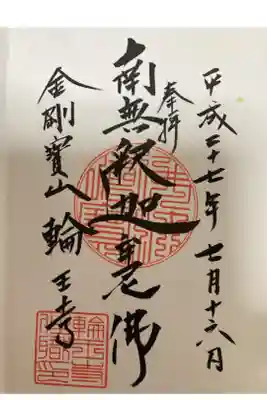 平成二十七年 七月十六日
奉拝
南無釈迦牟尼佛
金剛寶山 輪王寺